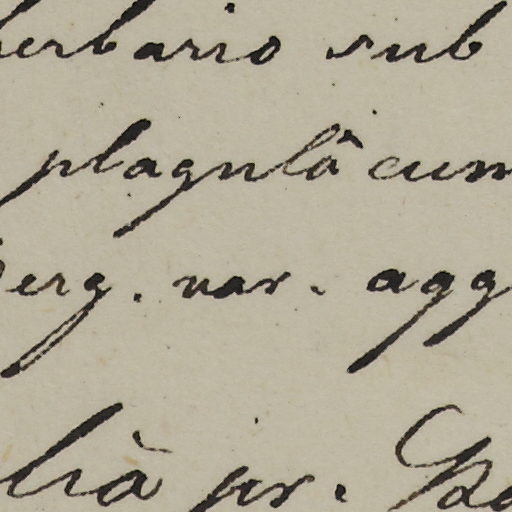 herbario sub
plagulâ cum
Berg. var. agg
liâ pr. Ba